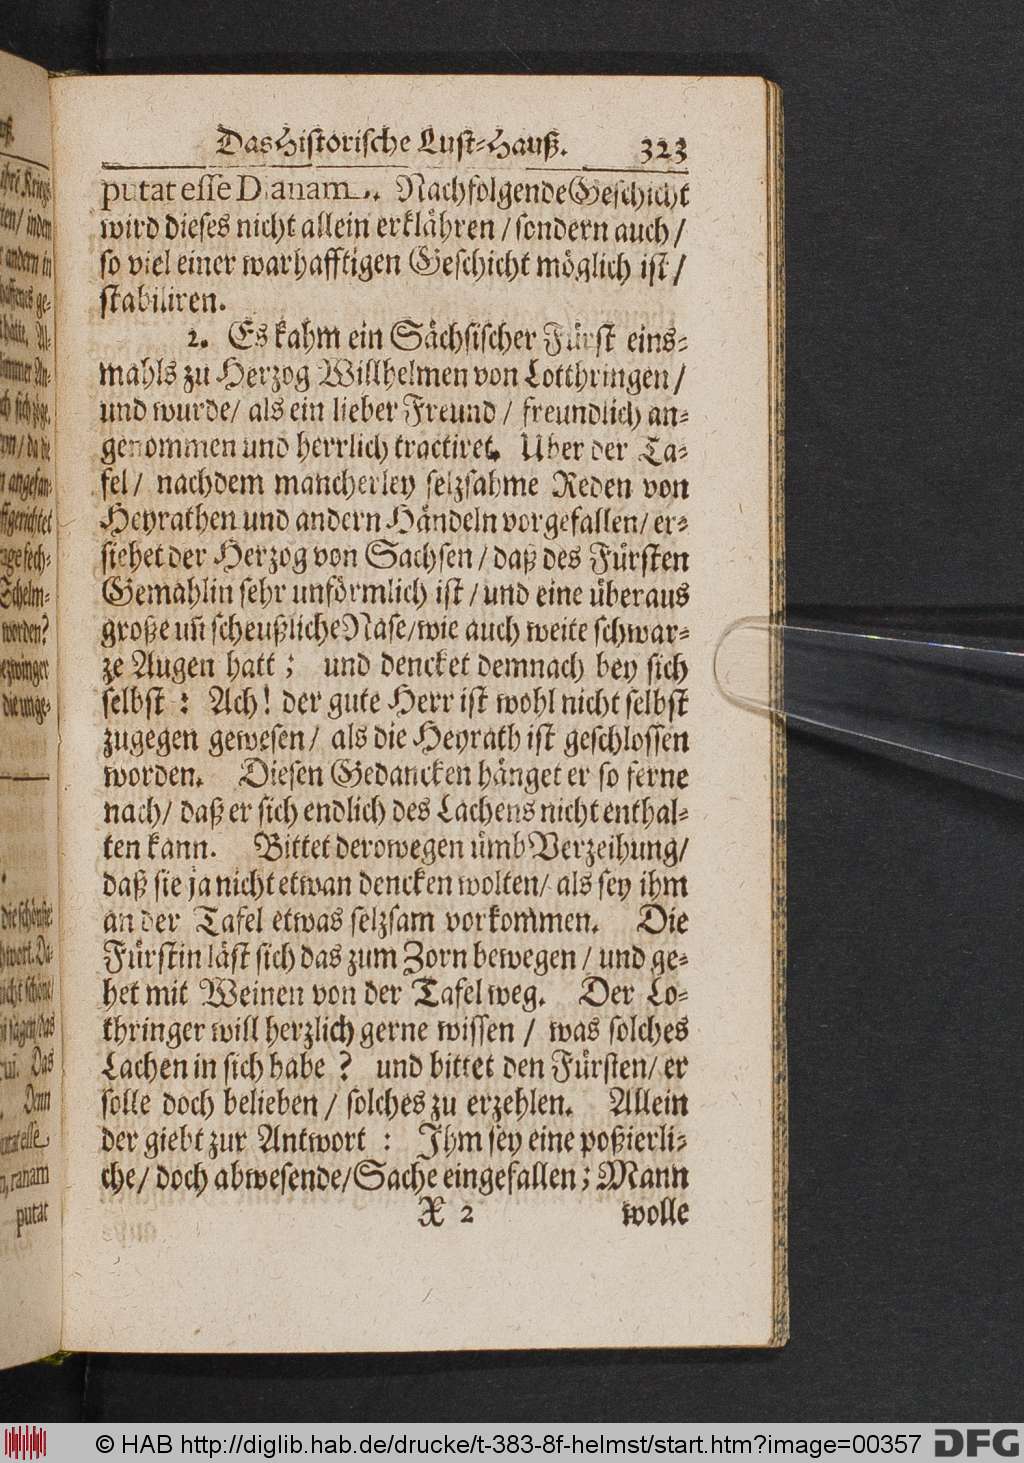 Das Historische Lust-Hauß. 323
putat esse Dianam.. Nachfolgende Geschicht
wird dieses nicht allein erklähren / sondern auch /
so viel einer warhafftigen Geschicht möglich ist /
stabiliren.
2. Es kahm ein Sächsischer Fürst eins-
mahls zu Herzog Willhelmen von Lotthringen /
und wurde / als ein lieber Freund / freundlich an-
genommen und herrlich tractiret. Uber der Ta-
fel / nachdem mancherley selzsahme Reden von
Heyrathen und andern Händeln vorgefallen / er-
siehet der Herzog von Sachsen / daß des Fürsten
Gemahlin sehr unförmlich ist / und eine überaus
große uñ scheußliche Nase / wie auch weite schwar-
ze Augen hatt ; und dencket demnach bey sich
selbst : Ach ! der gute Herr ist wohl nicht selbst
zugegen gewesen / als die Heyrath ist geschlossen
worden. Diesen Gedancken hänget er so ferne
nach / daß er sich endlich des Lachens nicht enthal-
ten kann. Bittet derowegen ümb Verzeihung /
daß sie ja nicht etwan dencken wolten / als sey ihm
an der Tafel etwas selzsam vorkommen. Die
Fürstin läst sich das zum Zorn bewegen / und ge-
het mit Weinen von der Tafel weg. Der Lo-
thringer will herzlich gerne wissen / was solches
Lachen in sich habe ? und bittet den Fürsten / er
solle doch belieben / solches zu erzehlen. Allein
der giebt zur Antwort : Ihm sey eine poßierli-
che / doch abwesende / Sache eingefallen ; Mann
X 2 wolle
putat
© HAB http://diglib.hab.de/drucke/t-383-8f-helmst/start.htm?image=00357
DFG